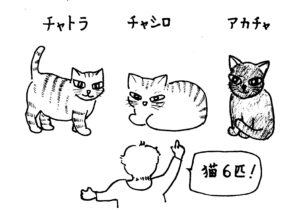 チャトラ
チャシロ
アカチャ
猫6匹!